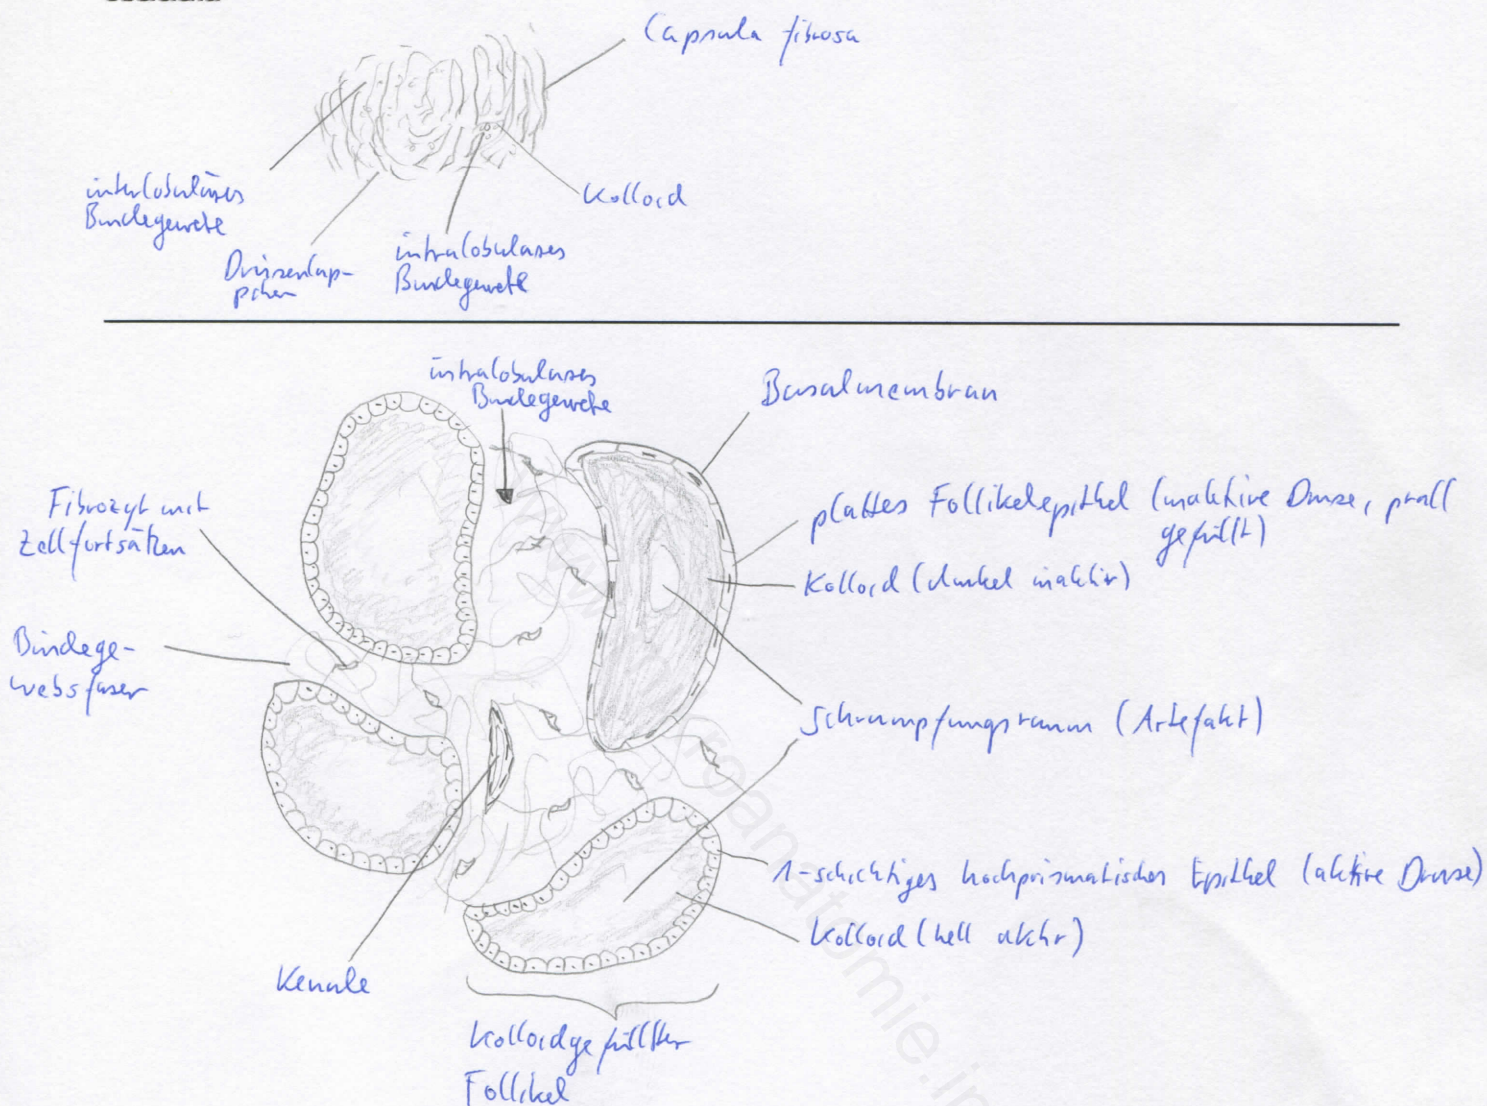 Capsula fibrosa
interlobuläres
Bindegewebe
Kolloid
Drüsenläp-
pchen
intralobuläres
Bindegewebe
intralobuläres
Bindegewebe
Basalmembran
Fibrozyt mit
Zellfortsätzen
plattes Follikelepithel (inaktive Drüse, prall
gefüllt)
Kolloid (dunkel inaktiv)
Bindege-
websfaser
Schrumpfungsraum (Artefakt)
1-schichtiges hochprismatisches Epithel (aktive Drüse)
Kolloid (hell aktiv)
Kolloidgefüllter
Follikel